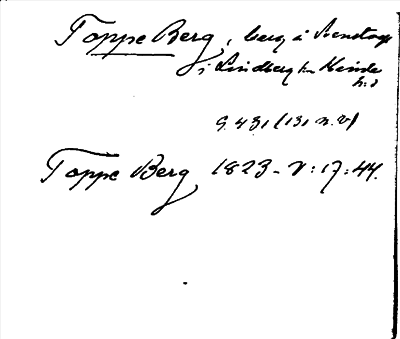 Toppe Berg, berg å Stenstorp
i Lindberg sn Himle
h:d
G. 431 (131 n. v)
Toppe Berg 1823 - V : 17 : 44.